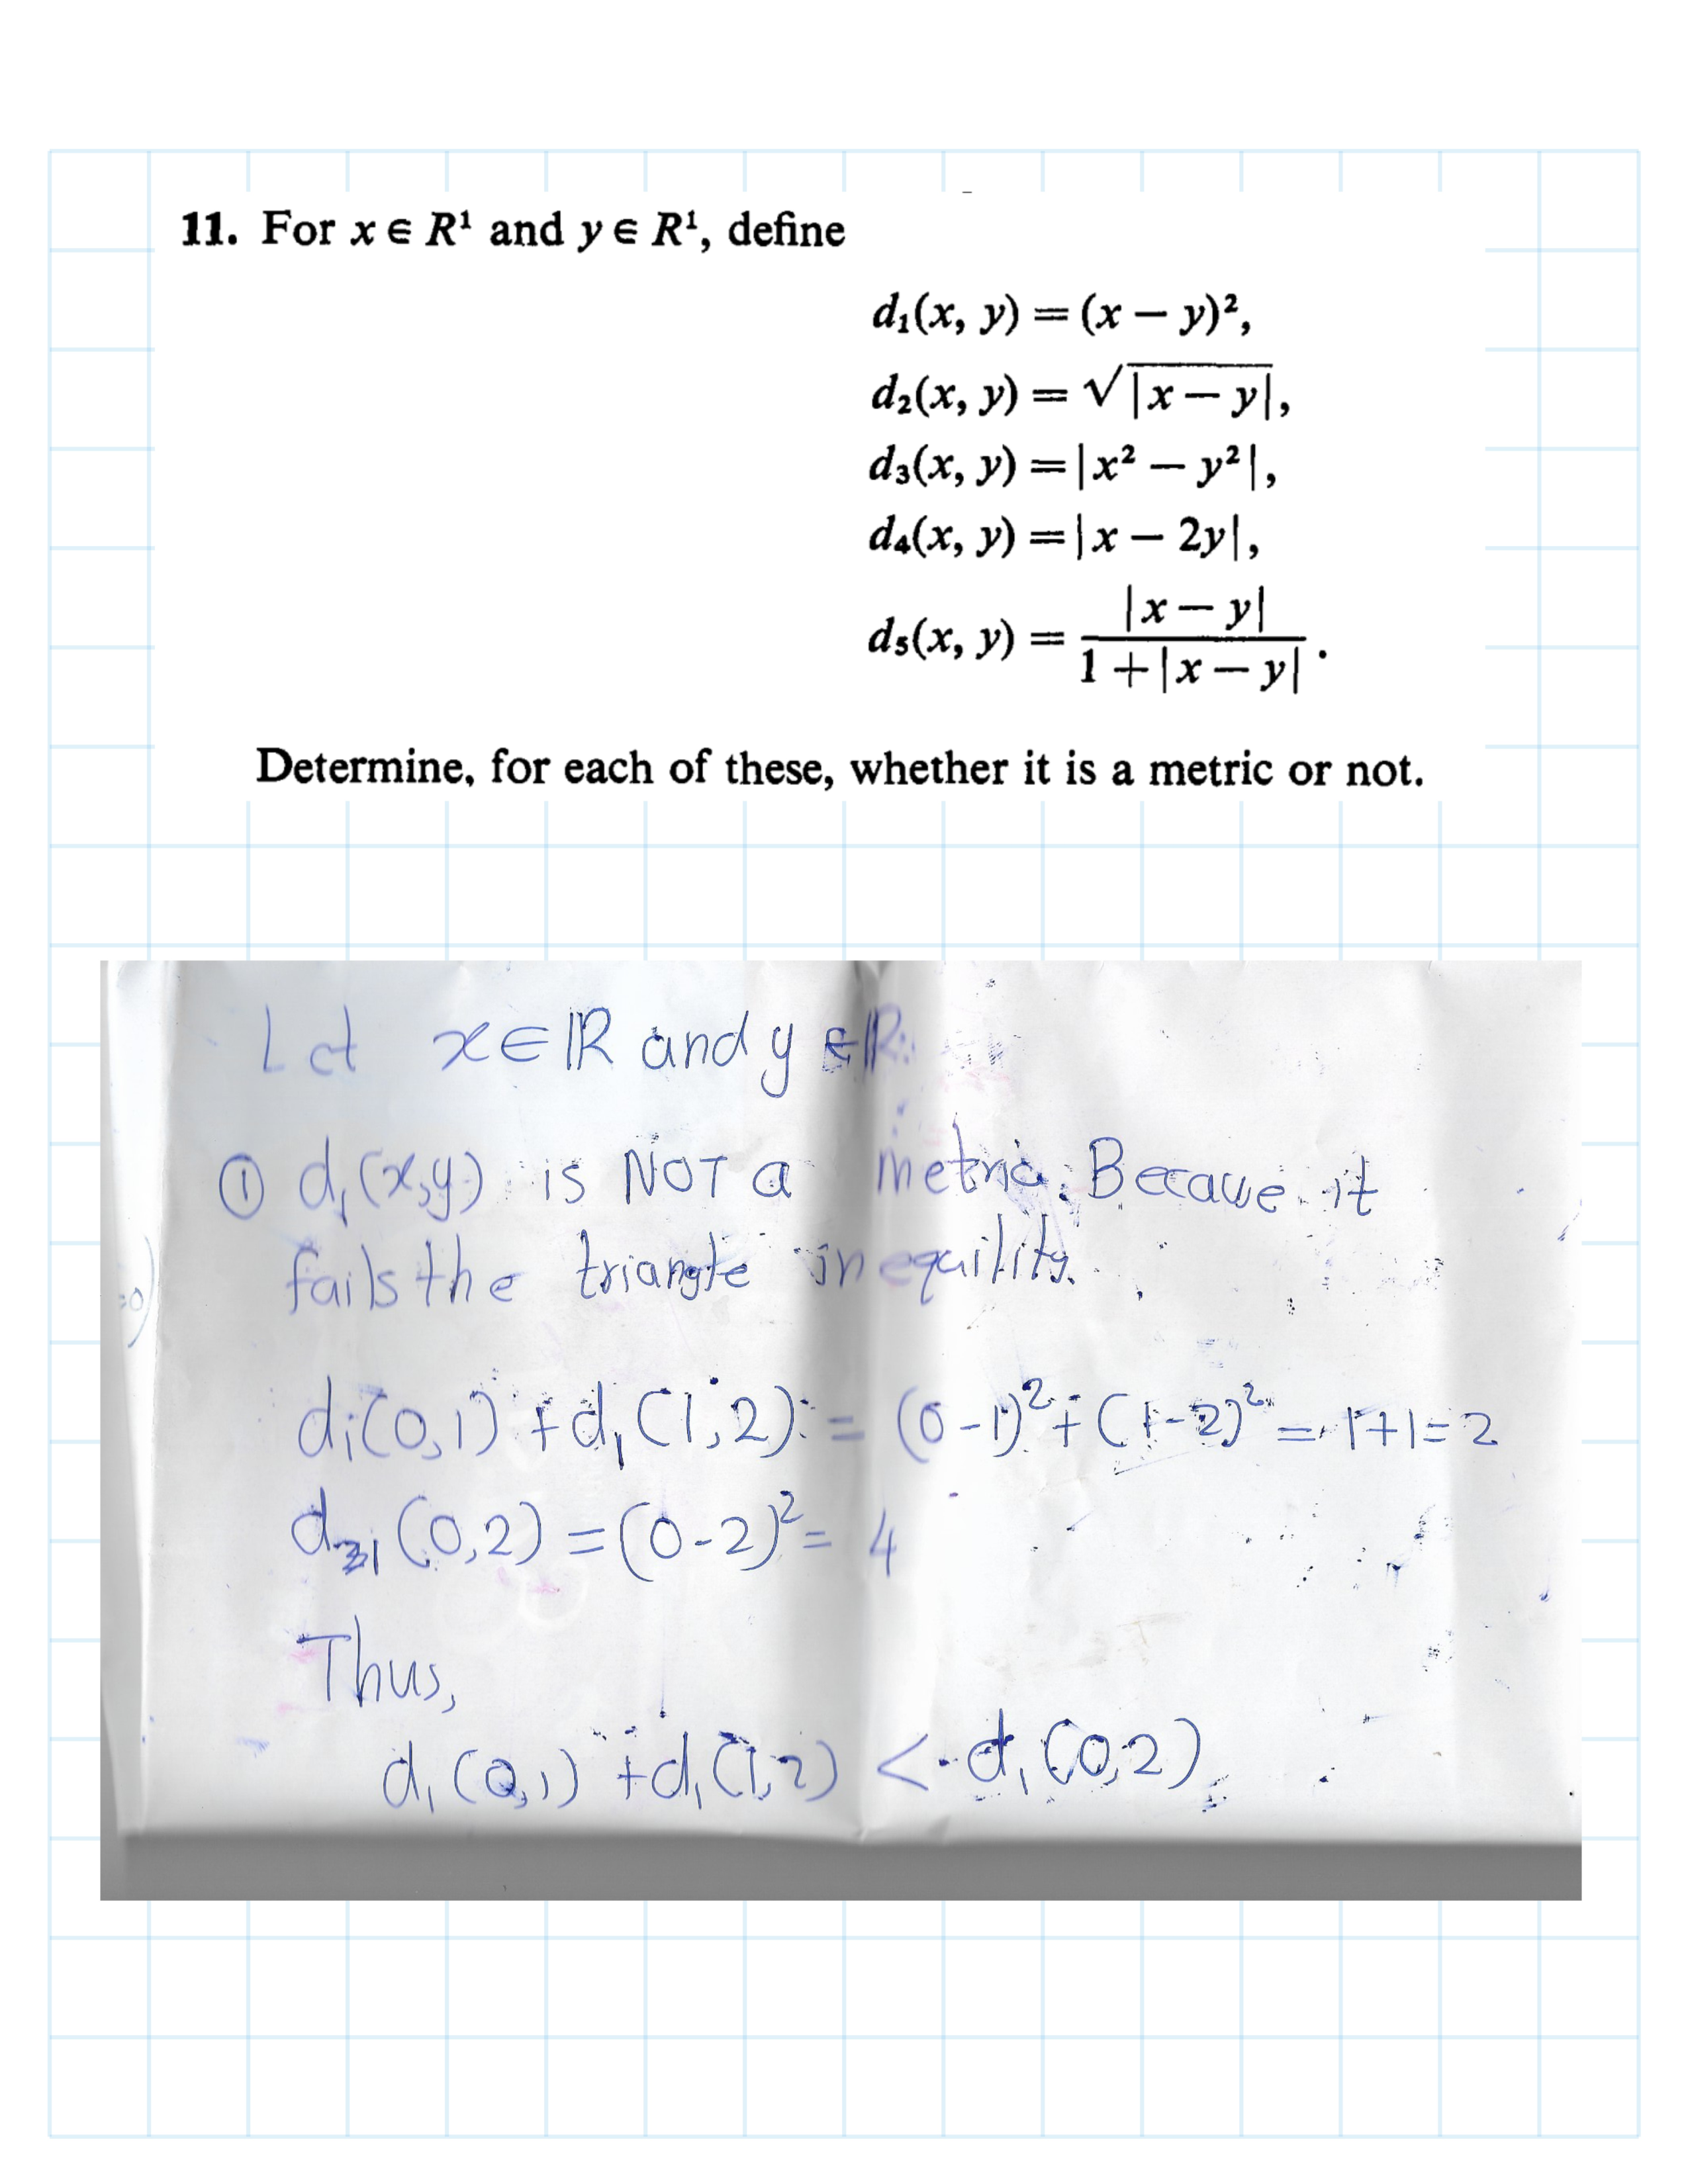 11. For x ∈ R¹ and y ∈ R¹, define
d₁(x, y) = (x − y)²,
d₂(x, y) = √|x − y|,
d₃(x, y) = |x² − y²|,
d₄(x, y) = |x − 2y|,
d₅(x, y) = |x − y| / 1 + |x − y| .
Determine, for each of these, whether it is a metric or not.
Let x ∈ ℝ and y ∈ ℝ.
① d₁(x,y) is NOT a metric. Because it
fails the triangle inequility.
d₁(0,1) + d₁(1,2) = (0-1)² + (1-2)² = 1+1=2
d₁(0,2) = (0-2)² = 4
Thus,
d₁(0,1) + d₁(1,2) < d₁(0,2)